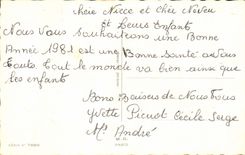 Chère Nièce et Cher Neveu
et Leurs Enfants
Nous Vous souhaitons une Bonne
Année 1981 et une Bonne Santé a vous
touts. tout le monde va bien ainsi que
les enfants
Bons Baisers de Nous tous
Yvette Pierrot Cécile Serge
André
PARIS